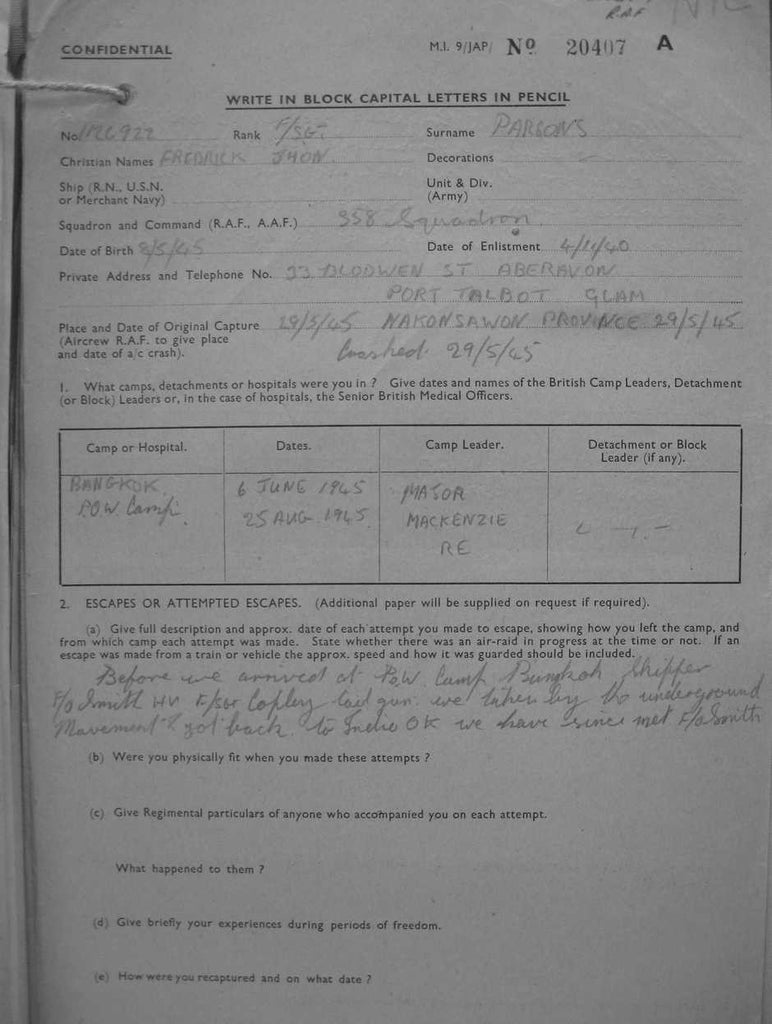 R.A.F
CONFIDENTIAL
M.I. 9/JAP/ No 20407 A
WRITE IN BLOCK CAPITAL LETTERS IN PENCIL
No. Rank F/SGT Surname PARSONS
Christian Names FREDRICK JHON Decorations
Ship (R.N., U.S.N. or Merchant Navy) Unit & Div. (Army)
Squadron and Command (R.A.F., A.A.F.) 358 Squadron
Date of Birth 8/5/45 Date of Enlistment 4/11/40
Private Address and Telephone No. 33 BLODWEN ST ABERAVON
PORT TALBOT GLAM
Place and Date of Original Capture 29/5/45 NAKONSAWON PROVINCE 29/5/45
(Aircrew R.A.F. to give place
and date of a/c crash). Crashed 29/5/45
1. What camps, detachments or hospitals were you in ? Give dates and names of the British Camp Leaders, Detachment
(or Block) Leaders or, in the case of hospitals, the Senior British Medical Officers.
Camp or Hospital. Dates. Camp Leader. Detachment or Block
Leader (if any).
BANGKOK 6 JUNE 1945 MAJOR
P.O.W. Camp. 25 AUG 1945 MACKENZIE
RE
2. ESCAPES OR ATTEMPTED ESCAPES. (Additional paper will be supplied on request if required).
(a) Give full description and approx. date of each attempt you made to escape, showing how you left the camp, and
from which camp each attempt was made. State whether there was an air-raid in progress at the time or not. If an
escape was made from a train or vehicle the approx. speed and how it was guarded should be included.
Before we arrived at P.o.W. Camp Bangkok Skipper
F/o Smith HV F/Sgt Copley tail gun. we taken by the underground
Movement & got back to India OK we have since met F/o Smith
(b) Were you physically fit when you made these attempts ?
(c) Give Regimental particulars of anyone who accompanied you on each attempt.
What happened to them ?
(d) Give briefly your experiences during periods of freedom.
(e) How were you recaptured and on what date ?